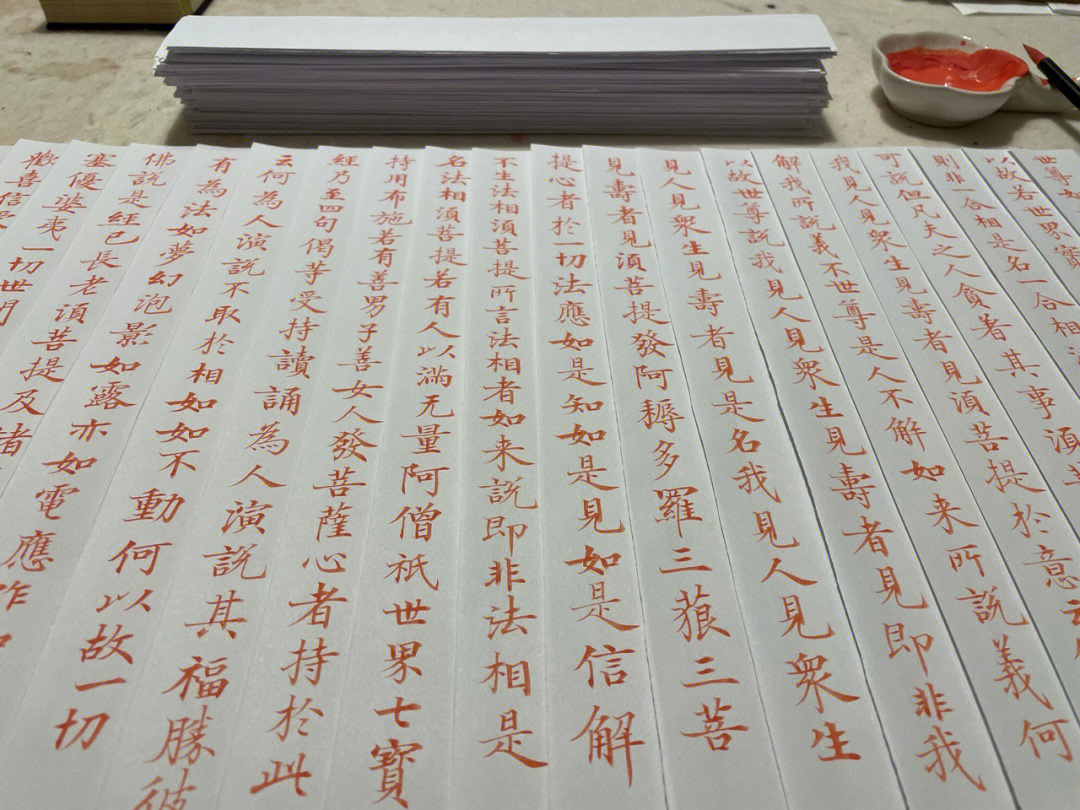 世尊
以故若世界實
則非一合相是名一合相
可說但凡夫之人貪著其事須菩
我見人見衆生見壽者見須菩提於意云何
解我所說義不世尊是人不解如来所說義何
以故世尊說我見人見衆生見壽者見即非我
見人見衆生見壽者見是名我見人見衆生
見壽者見須菩提發阿耨多羅三藐三菩
提心者於一切法應如是知如是見如是信解
不生法相須菩提所言法相者如来說即非法相是
名法相須菩提若有人以滿无量阿僧祇世界七寶
持用布施若有善男子善女人發菩薩心者持於此
經乃至四句偈等受持讀誦為人演說其福勝彼
云何為人演說不取於相如如不動何以故一切
有為法如夢幻泡影如露亦如電應作
佛說是經已長老須菩提及諸
塞優婆夷一切世間
歡喜信受